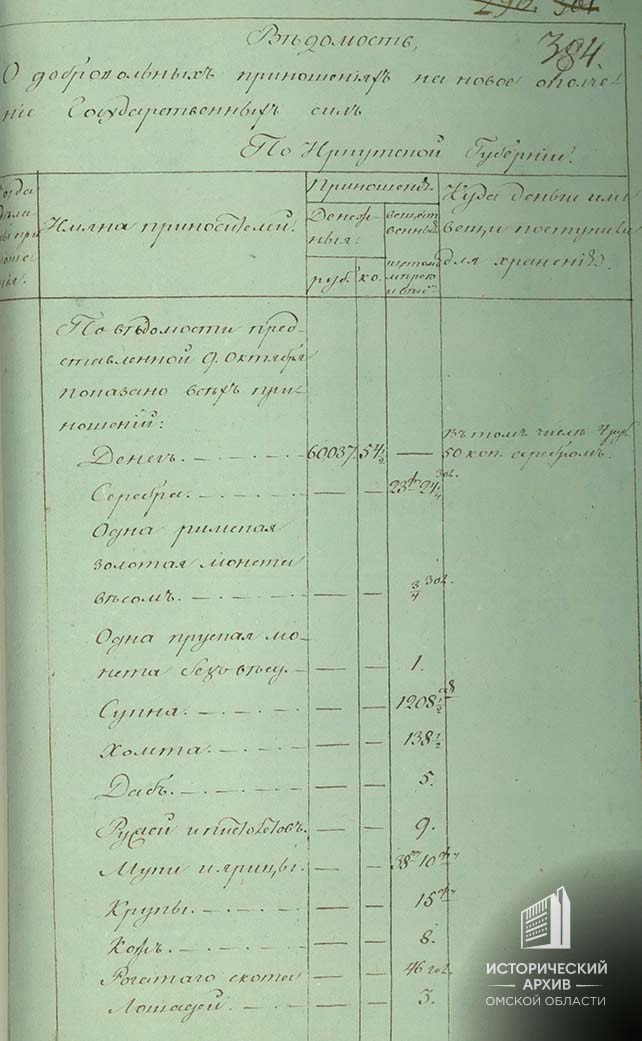 290. 301.
384.
Вѣдомость,
О добровольныхъ приношенiяхъ на новое ополче-
нiе Государственныхъ силъ
По Иркутской Губернiи.
Когда
Имяна приносителей.
Приношенiя.
Денеж-
ныя.
руб.
ко.
вещест
венныя
Куда деньги или
вещи поступили
для храненiя.
По вѣдомости пред-
ставленной 9. Октября
показано всѣхъ при-
ношенiй:
Денегъ. — 60037. 54 1/2 — Въ томъ числѣ 4 руб.
50 коп. серебромъ.
Серебра. — — — 23 ф. 24 1/4 зол.
Одна римская
золотая монета
вѣсомъ. — — — 3/4 зол.
Одна пруская мо-
нета безъ вѣсу. — — 1.
Сукна. — — — 1208 1/2 ар
Холста. — — — 138 1/2
Дабъ. — — — 5.
Ружей и пистолетовъ. — — 9.
Муки и ярицы. — — 38 10
Крупы. — — — 15
Кожъ. — — — 8.
Рогатаго скота — — 46 гол.
Лошадей. — — — 3.
ИСТОРИЧЕСКИЙ
АРХИВ
ОМСКОЙ ОБЛАСТИ